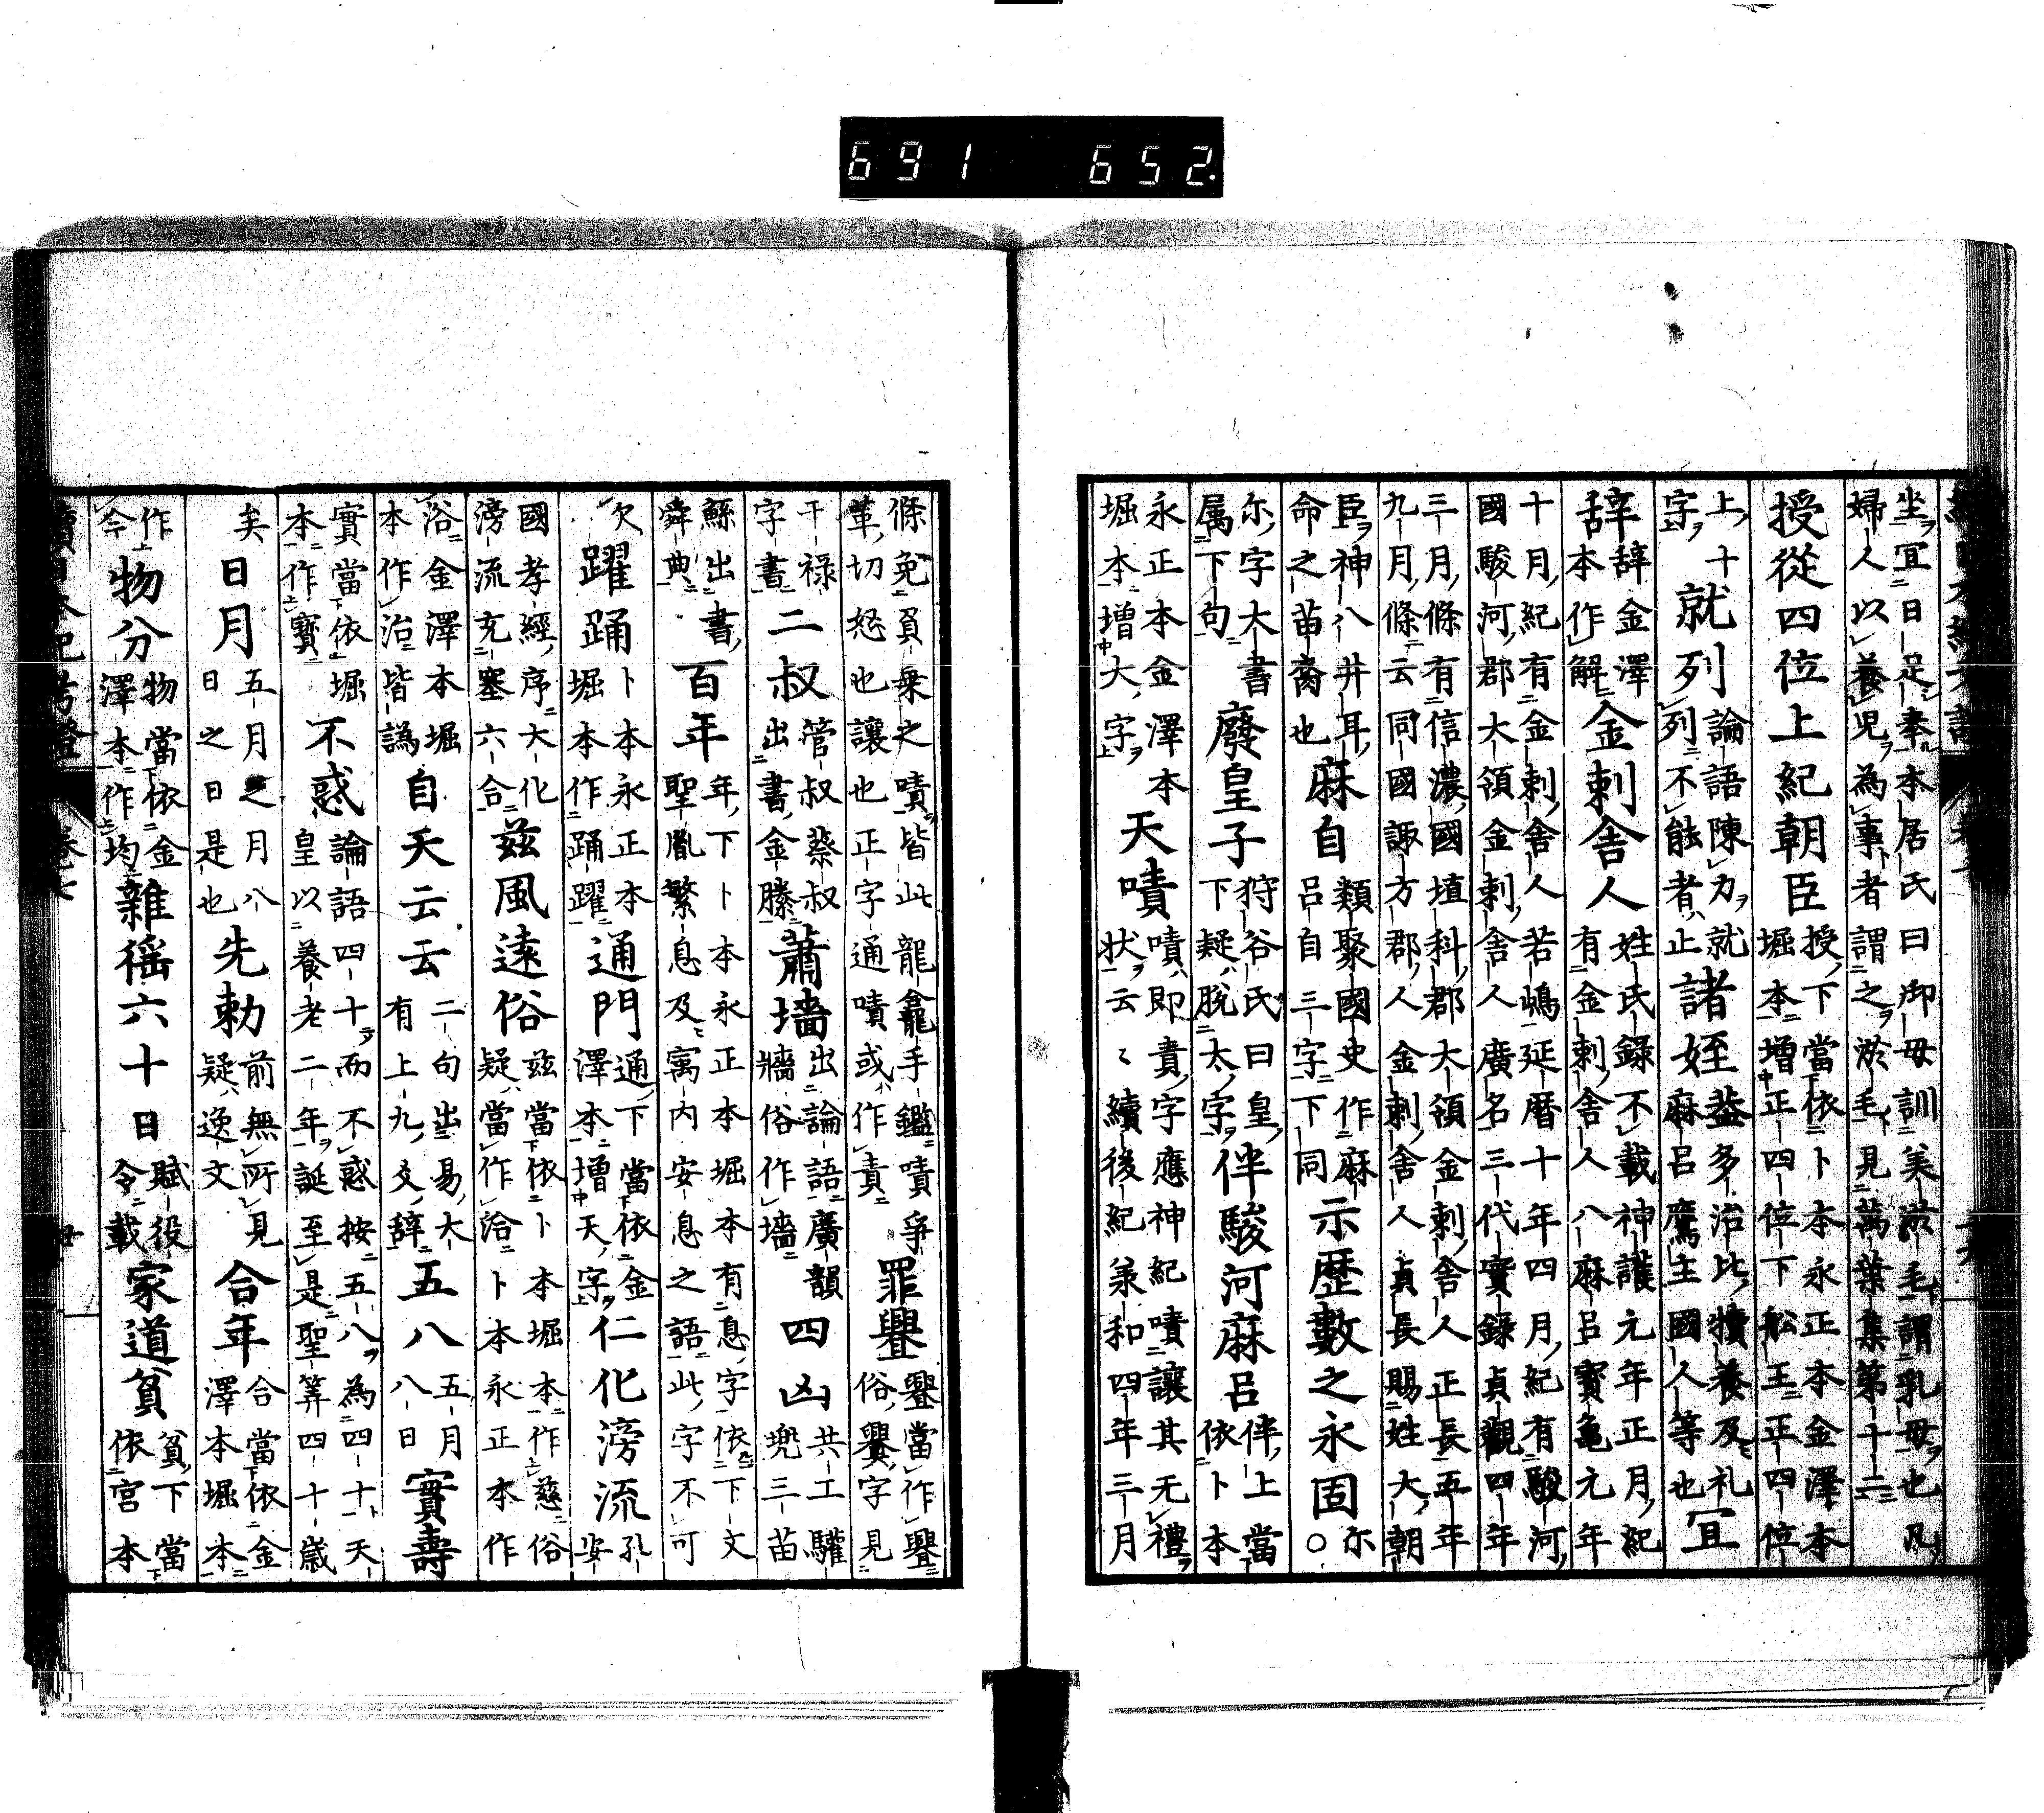 691 652.
坐宜日足奉本居氏曰御母訓美淤毛謂乳母也凡
婦人以養児為事者謂之淤毛見萬葉集第十二
授從四位上紀朝臣 授下當依卜本永正本金澤本
堀本增正四位下舩王正四位
上十字 就列 論語陳力就列不能者止 諸姪 益多治比犢養及礼麻呂鷹主國人等也 宜
辞 辞金澤本作解 金刺舎人 姓氏錄不載神護元年正月紀
有金刺舎人八麻呂寶亀元年
十月紀有金刺舎人若嶋延暦十年四月紀有駿河
國駿河郡大領金刺舎人廣名三代實録貞觀四年
三月條有信濃國埴科郡大領金刺舎人正長五年
九月條云同國諏方郡人金刺舎人貞長賜姓大朝
臣神八井耳命之苗裔也 麻自 類聚國史作麻呂自三字下同 示歴數之永固 尓○
尓字大書属下句 廢皇子 狩谷氏曰皇下疑脱太字 伴駿河麻呂 伴上當依卜本
永正本金澤本堀本增大字 天嘖 嘖即責字應神紀嘖讓其无禮
状云〻續後紀羕和四年三月
條免負乗之嘖皆此龍龕手鑑嘖爭
革切怒也讓也正字通嘖或作責 罪舋 舋當作舋俗釁字見
干禄字書 二叔 管叔蔡叔出書金縢 蕭墻 出論語廣韻牆俗作墻 四凶 共工驩兜三苗
鯀出書舜典 百年 年下卜本永正本堀本有息字依下文
聖胤繁息及寓内安息之語此字不可
欠 躍踊 卜本永正本堀本作踊躍 通門 通下當依金澤本增天字 仁化滂流 孔安
國孝經序大化滂流充塞六合 茲風遠俗 茲當依卜本堀本作慈俗
疑當作洽卜本永正本作
浴金澤本堀本作治皆譌 自天云云 二句出易大有上九爻辞 五八 五月八日 實壽
實當依堀本作寳 不惑 論語四十而不惑按五八為四十天
皇以養老二年誕至是聖筭四十歳
矣 日月 五月之月八日之日是也 先勅 前無所見疑逸文 合年 合當依金澤本堀本
作今 物分 物當依金澤本作均 雜徭六十日 賦役令載 家道貧 貧下當依宮本